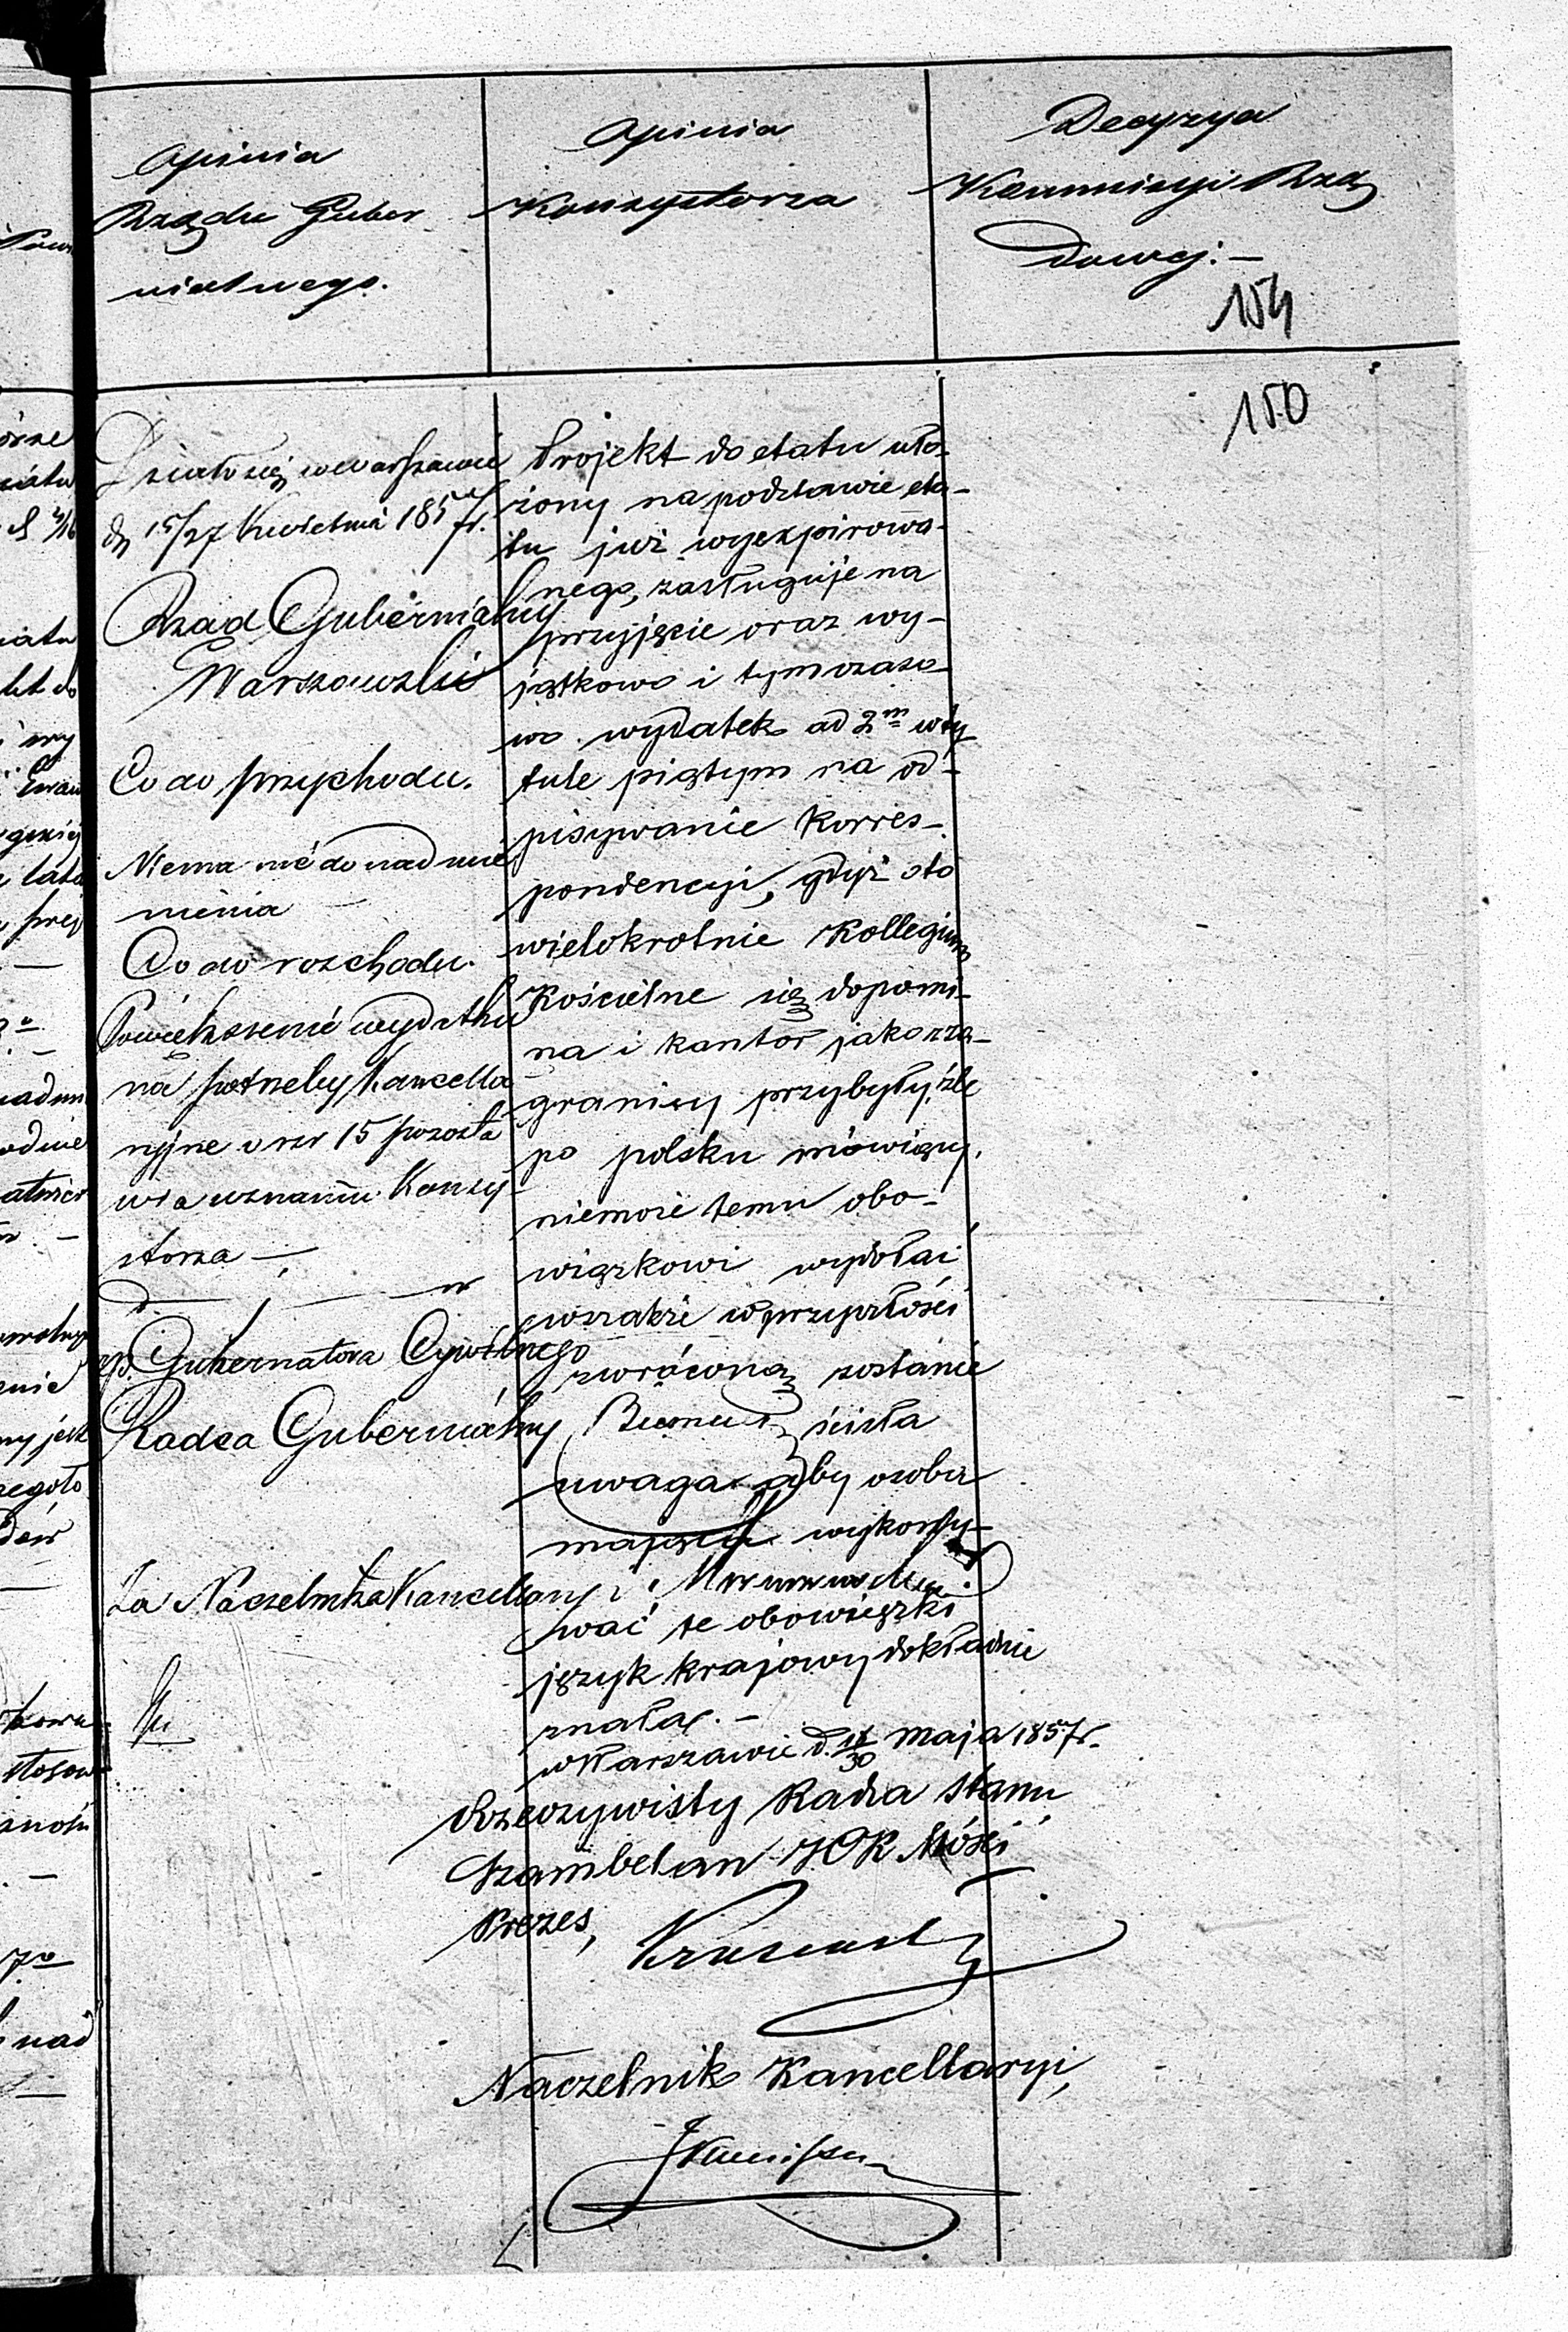 Opinia
Rządu Guber
nialnego.
Opinia
Konzystorza
Decyzya
Kommisyi Rzą
dowej: —
154
150
Działo się w Warszawie
d. 15/27 Kwietnia 1857 r.
Rząd Gubernialny
Warszawski
Co do przychodu.
Niema nic do nadmie
nienia —
Co do rozchodu.
Powiększenie wydatku
na potrzeby Kancella
ryjne o rsr 15 pozosta
wia uznaniu Konsy
storza —
zp. Gubernatora Cywilnego
Radca Gubernialny
Za Naczelnika Kancellaryi
Projekt do etatu uło-
żony na podstawie eta-
tu już wyexpirowa-
nego, zasługuje na
przyjęcie oraz wy-
jątkowo i tymczaso-
wo wydatek ad 2m w ty
tule piątym na od-
pisywanie Korres-
pondencyi, gdyż oto
wielokrotnie Kollegium
Kościelne się dopomi-
na i kantor jako z za-
granicy przybyły, źle
po polsku mówiący,
niemoże temu obo-
wiązkowi wydołać
wszakże w przyszłości
zwróconą zostanie
ścisła
uwaga aby osoba
mająca wykony-
wać te obowiązki
język krajowy dokładnie
znała. —
w Warszawie d. 18/30 Maja 1857 r.
Rzeczywisty Radca Stanu
Szambelan JCK Mości
Prezes,
Naczelnik Kancellaryi,